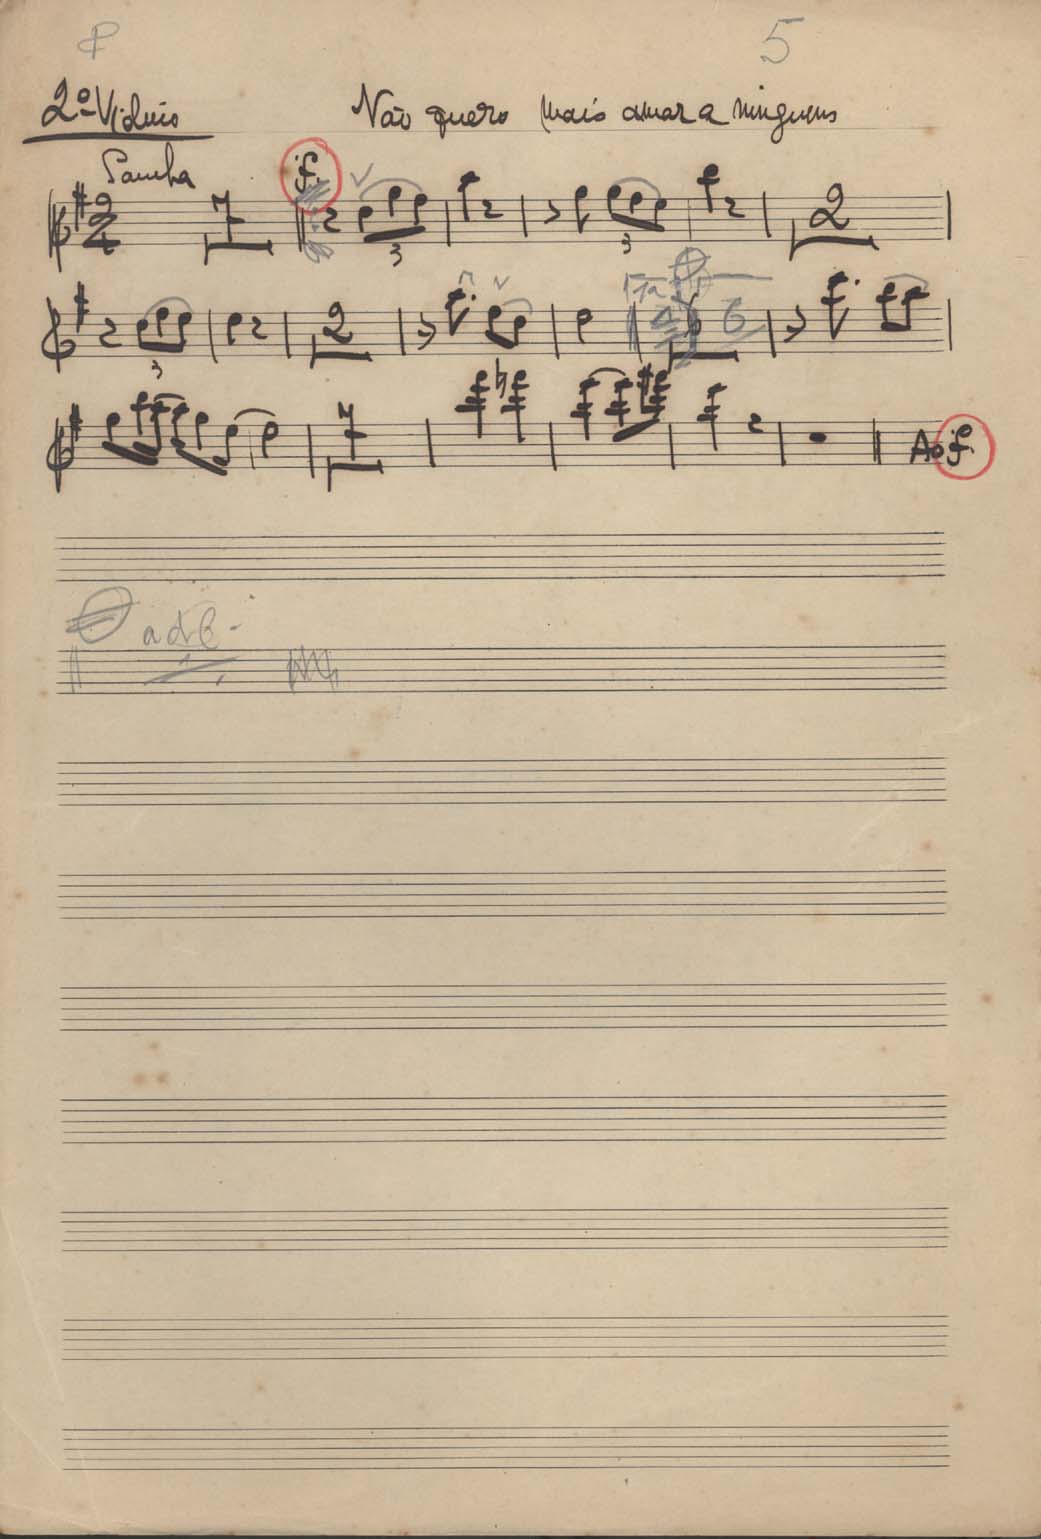 5
2º Violino Não quero mais amar a ninguem
Samba
2 4 7 3 3 2
3 2 6
7 Ao